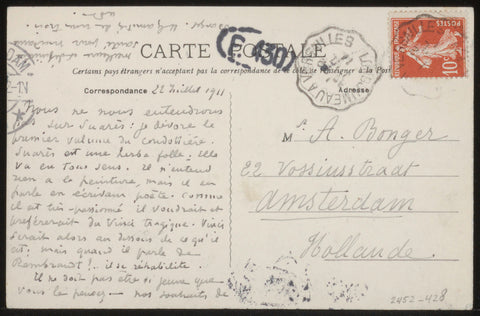 CARTE POSTALE
Certains pays étrangers n'acceptant pas la correspondance de ce côté, se renseigner à la Poste
Correspondance 22 Juillet 1911
Adresse
Nous ne nous entendrons
pas sur Suarès: je dévore le
premier volume du Condottière.
Suarès est une herbe folle: elle
va en tous sens. Il n'entend
rien à la peinture, mais il en
parle en écrivain poète. Comme
il est très-passionné il voudrait et
préférerait du Vinci tragique. Vinci
serait alors au dessous de ce qu'il
est. mais quand il parle de
Rembrandt!.. il se réhabilite.
Il ne doit pas être si jeune que
vous le pensez – nos souhaits de
meilleure
santé
trois
M. A. Bonger
22 Vossiusstraat
Amsterdam
Hollande.
10
430
2452-428